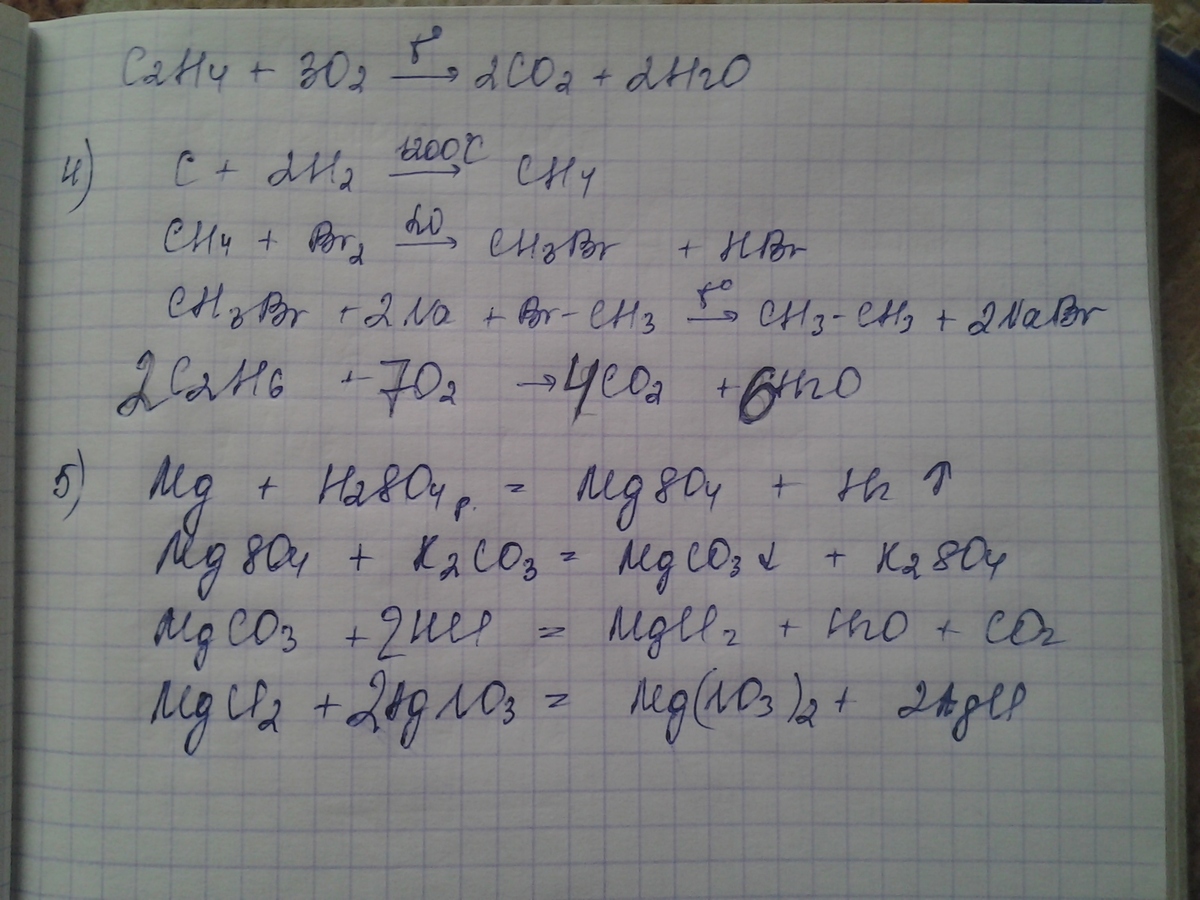 C2H4 + 3O2 t° → 2CO2 + 2H2O
4) C + 2H2 1200°C → CH4
CH4 + Br2 → CH3Br + HBr
CH3Br + 2Na + Br-CH3 t° → CH3-CH3 + 2NaBr
2C2H6 + 7O2 → 4CO2 + 6H2O
5) Mg + H2SO4 р. = MgSO4 + H2 ↑
MgSO4 + K2CO3 = MgCO3 ↓ + K2SO4
MgCO3 + 2HCl = MgCl2 + H2O + CO2
MgCl2 + 2AgNO3 = Mg(NO3)2 + 2AgCl